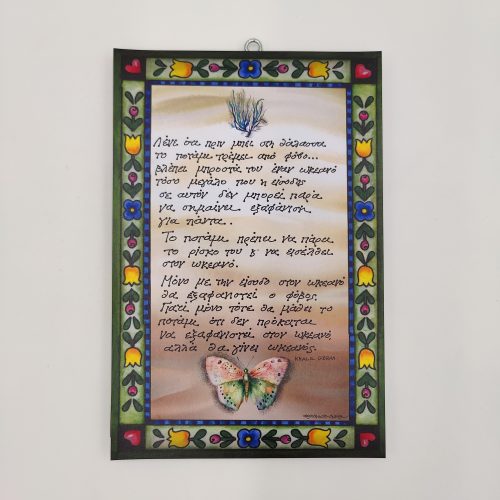 Λένε ότι πριν μπει στη θάλασσα
το ποτάμι τρέμει από φόβο...
βλέπει μπροστά του έναν ωκεανό
τόσο μεγάλο που η είσοδος
σε αυτόν δεν μπορεί παρά
να σημαίνει εξαφάνιση
για πάντα..
Το ποτάμι πρέπει να πάρει
το ρίσκο του & να εισέλθει
στον ωκεανό.
Μόνο με την είσοδο στον ωκεανό
θα εξαφανιστεί ο φόβος.
Γιατί μόνο τότε θα μάθει το
ποτάμι ότι δεν πρόκειται
να εξαφανιστεί στον ωκεανό,
αλλά θα γίνει ωκεανός.
KHALIL GIBRAN